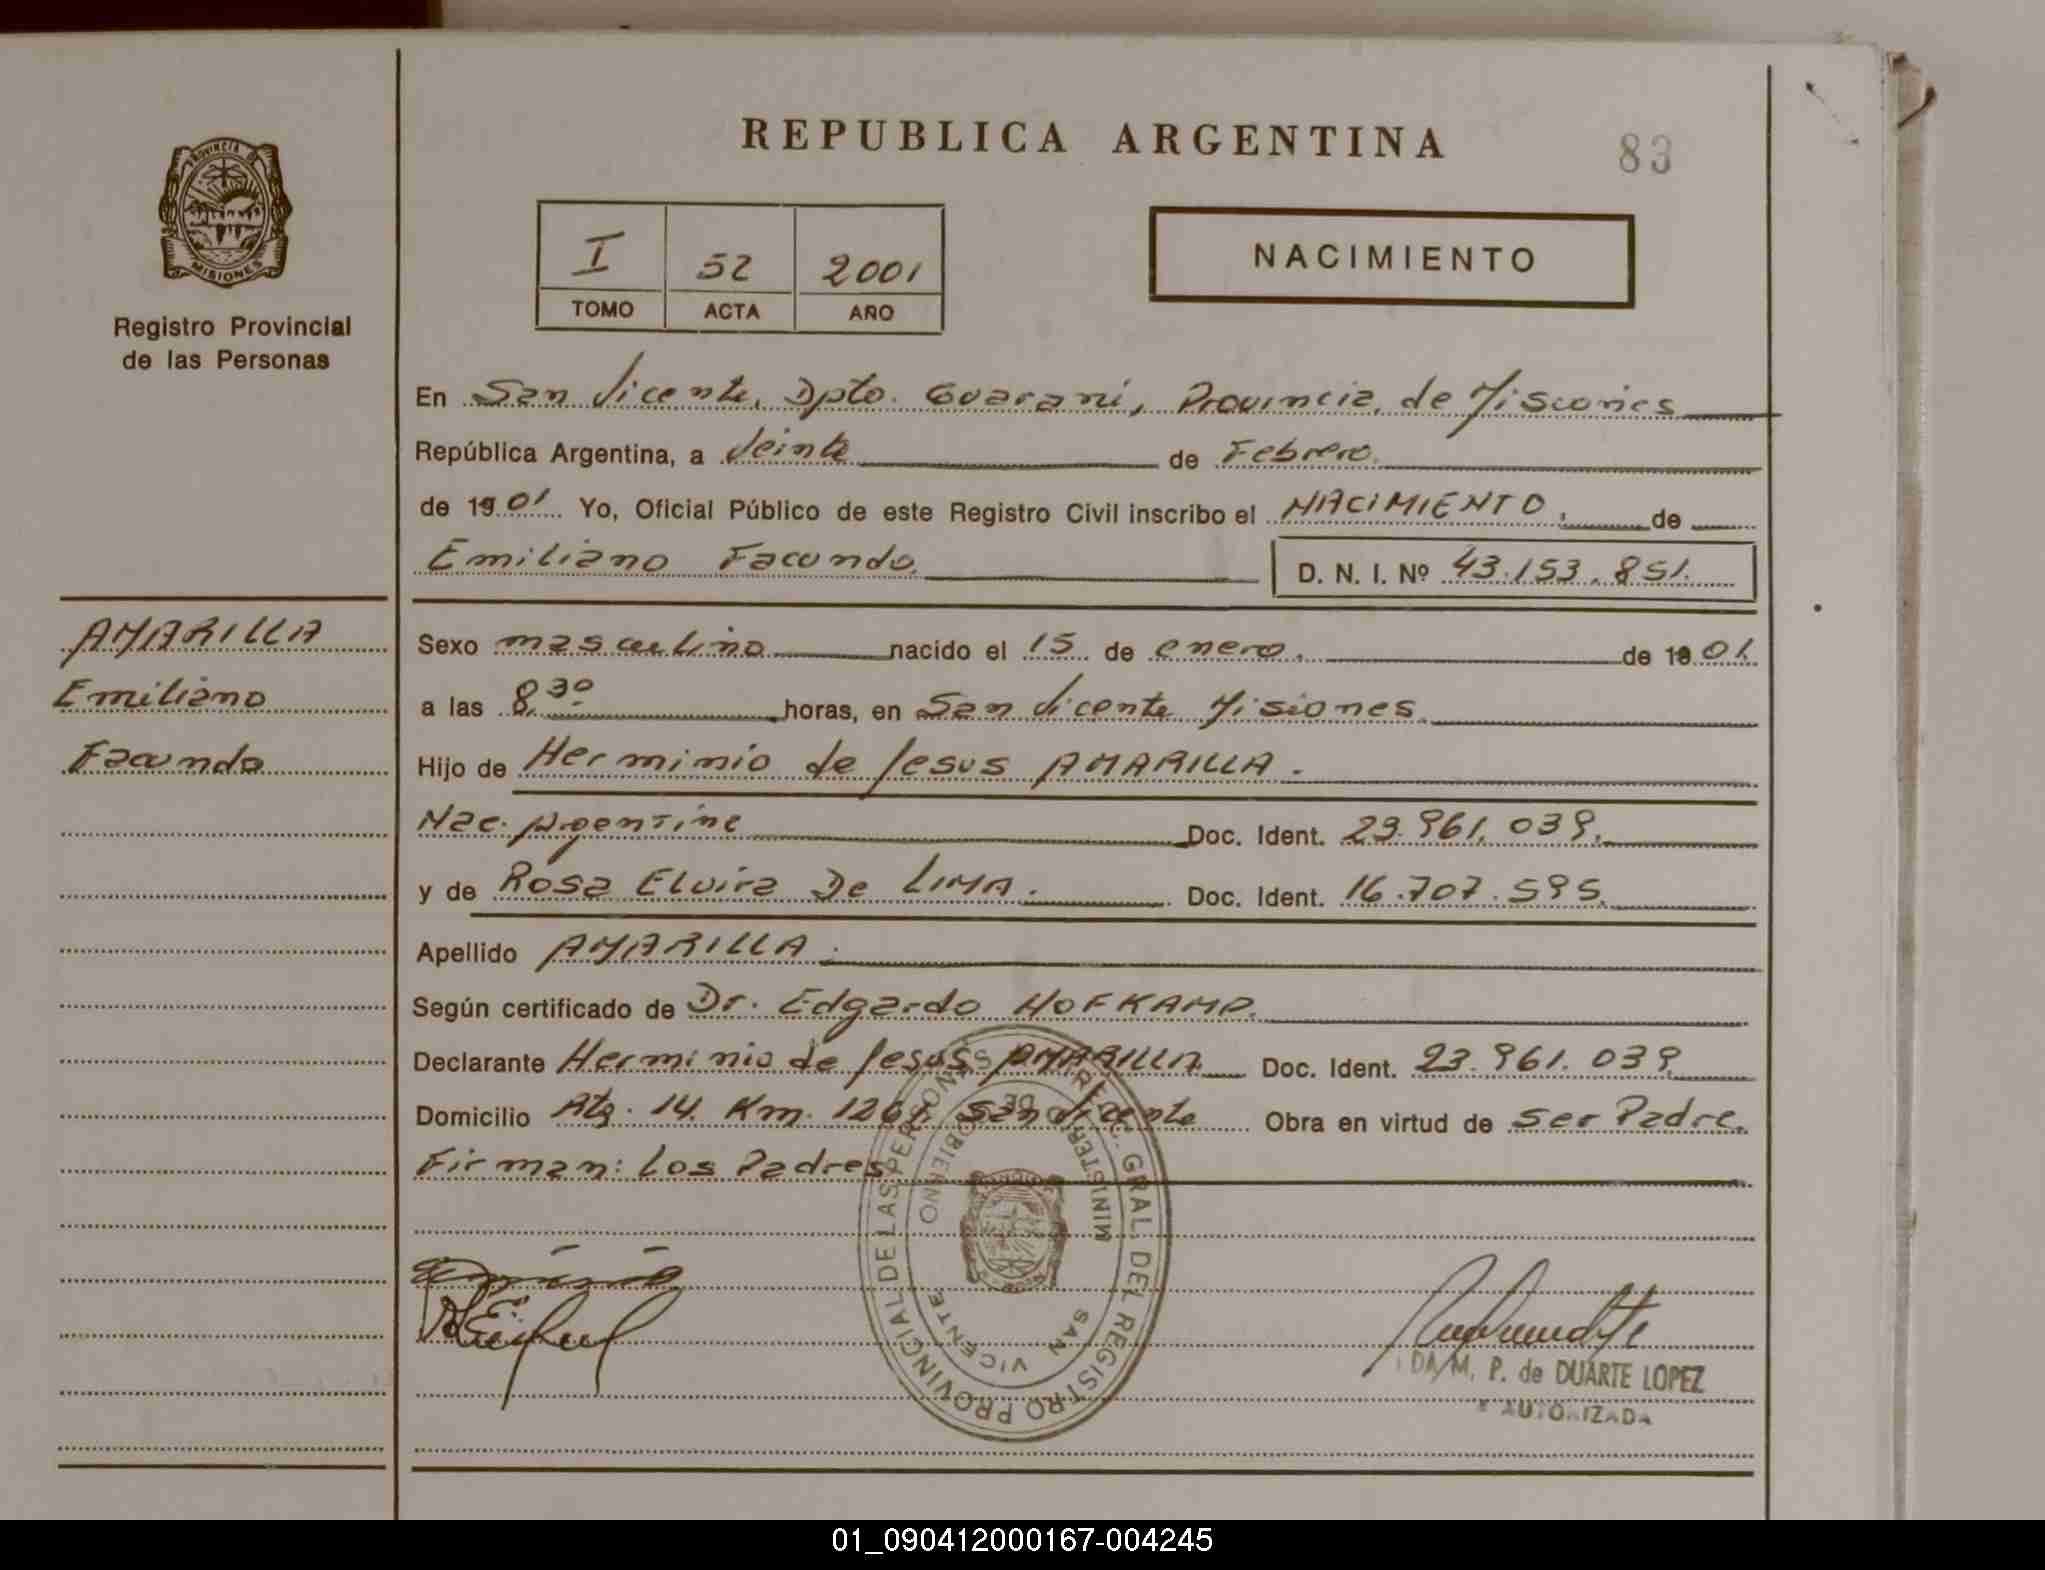 REPUBLICA ARGENTINA
83
PROVINCIA DE
MISIONES
Registro Provincial
de las Personas
I 52 2001
TOMO ACTA AÑO
NACIMIENTO
En San Vicente, Dpto. Guaraní, Provincia de Misiones
República Argentina, a Veinte de Febrero.
de 1901. Yo, Oficial Público de este Registro Civil inscribo el NACIMIENTO. de
Emiliano Facundo. D. N. I. Nº 43.153.851.
AMARILLA
Emiliano
Facundo
Sexo masculino nacido el 15 de enero. de 1901.
a las 8,30 horas, en San Vicente Misiones.
Hijo de Herminio de Jesus AMARILLA.
Nac. Argentine Doc. Ident. 23.961.039.
y de Rosa Elvira De LIMA. Doc. Ident. 16.707.595.
Apellido AMARILLA.
Según certificado de Dr. Edgardo HOFKAMP.
Declarante Herminio de Jesus AMARILLA. Doc. Ident. 23.961.039.
Domicilio Km. San Vicente Obra en virtud de ser Padre.
Firman: Los Padres
DIREC. GRAL. DEL REGISTRO PROVINCIAL DE LAS PERSONAS
MINISTERIO DE GOBIERNO
SAN VICENTE
M. P. de DUARTE LOPEZ
AUTORIZADA
01_090412000167-004245